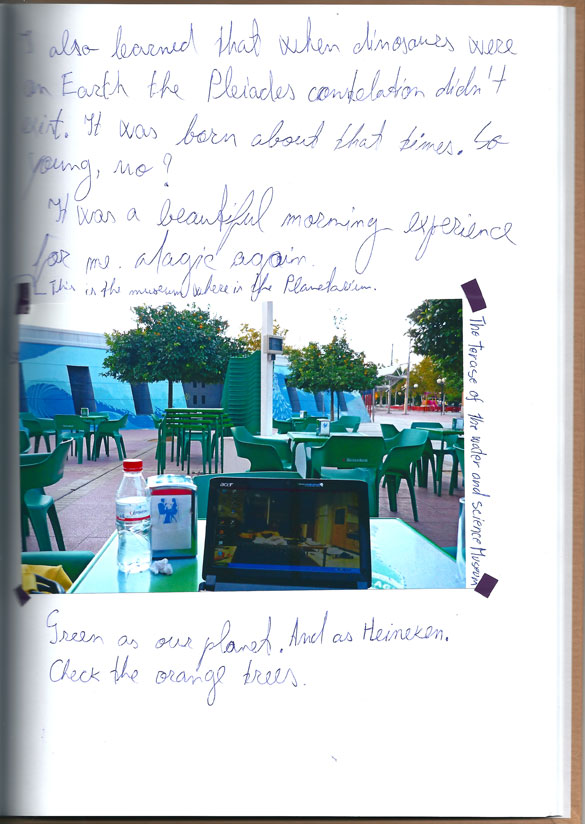 I also learned that when dinosaurs were
on Earth the Pleiades constelation didn't
exist. It was born about that times. So
young, no?
It was a beautiful morning experience
for me. Magic again.
This is the museum where is the Planetarium.
The terase of the water and science Museum
Heineken
acer
Green as our planet. And as Heineken.
Check the orange trees.